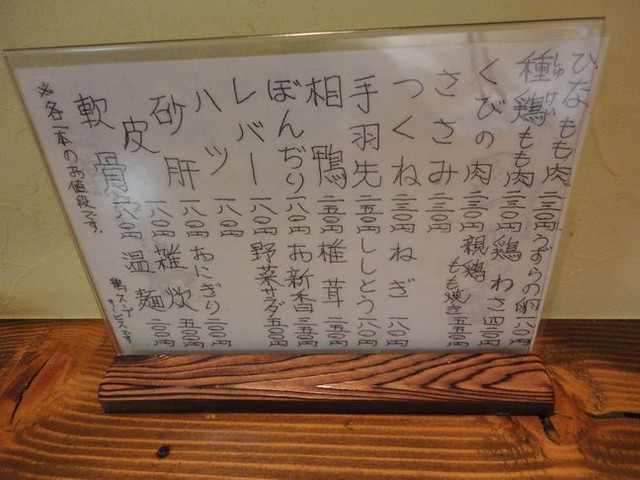 ひなもも肉 二三〇円 うずらの卵 一八〇円
種鶏もも肉 二三〇円 鶏わさ 四二〇円
しゅけい
くびの肉 二三〇円 親鶏もも焼き 五五〇円
ささみ 二三〇円
つくね 二三〇円 ねぎ 一八〇円
手羽先 二五〇円 ししとう 一八〇円
相鴨 二五〇円 椎茸 二五〇円
ぼんぢり 一八〇円 お新香 三五〇円
レバー 一八〇円 野菜サラダ 五〇〇円
ハツ 一八〇円
砂肝 一八〇円 おにぎり 二〇〇円
皮 一八〇円 雑炊 五〇〇円
軟骨 一八〇円 温麺
※各一本のお値段です。
鶏スープサービスです